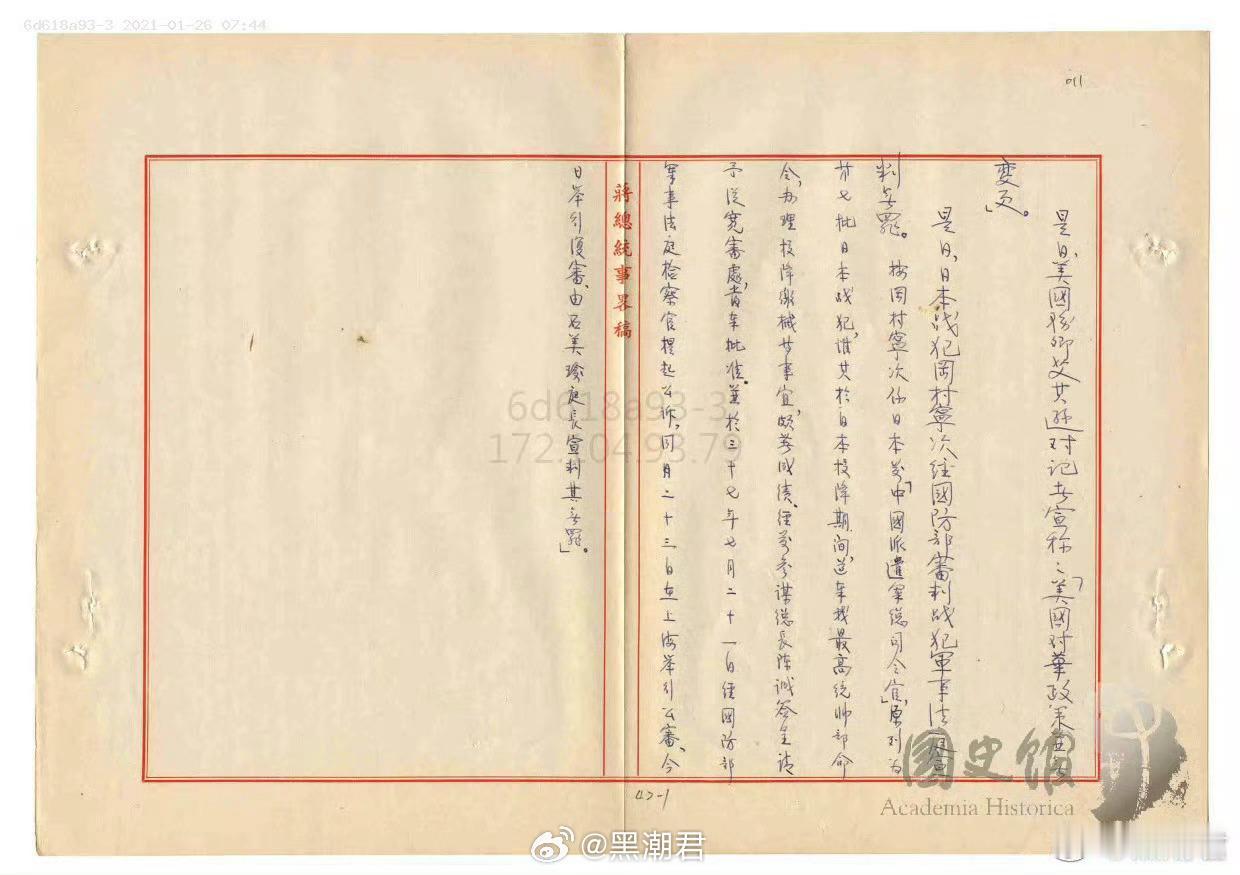 6d618a93-3 2021-01-26 07:44
011
是日,美國務卿艾其遜对記者宣称:「美國对華政策並無
變更」。
是日,日本战犯岡村寧次經國防部審判战犯軍事法庭宣
判無罪。按岡村寧次係日本前「中國派遣軍總司令官」,原列為
第七批日本战犯,惟其於日本投降期间,遵奉我最高統帥部命
令,办理投降繳械等事宜,頗著成績,經前參謀總長陈诚簽呈請
予從寬審處,責奉批准。並於三十七年七月二十一日經國防部
軍事法庭檢察官提起公訴,同月二十三日在上海举行公審,今
日举行復審,由石美瑜庭長宣判其無罪」。
蔣總統事畧稿
6d618a93-3
172.104.93.79
國史館
Academia Historica
47-1
@黑潮君